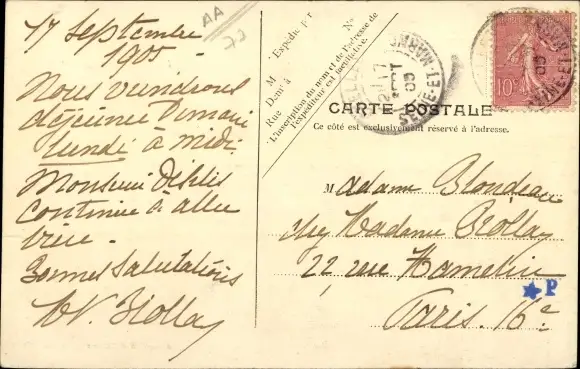 17 Septembre
1905
Nous viendrons
déjeuner Demain
lundi à midi.
Monsieur
continue à aller
bien.
Bonnes Salutations
AA
73
M
Expédié Par
No
Demt à
Rue
L'inscription du nom et de l'adresse de
l'expéditeur est facultative.
CARTE POSTALE
Ce côté est exclusivement réservé à l'adresse.
Madame Blondeau
chez Madame Biollay
22, rue Hamelin
Paris. 16e
P
10c
SEINE-ET-MARNE
17
SEPT
05
SEINE-ET-MARNE
05